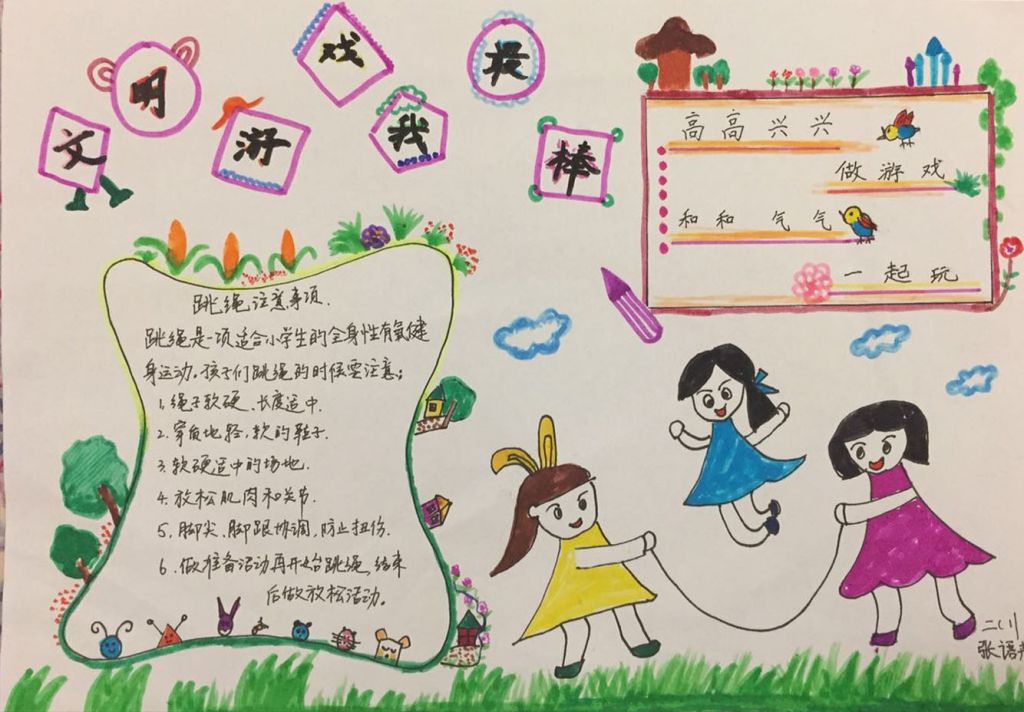 文明游戏我最棒
高高兴兴
做游戏
和和气气
一起玩
跳绳注意事项.
跳绳是一项适合小学生的全身性有氧健
身运动.孩子们跳绳的时候要注意:
1.绳子软硬、长度适中.
2.穿质地轻,软的鞋子.
3.软硬适中的场地.
4.放松肌肉和关节.
5.脚尖、脚跟协调,防止扭伤.
6.做准备活动再开始跳绳,结束
后做放松活动.
张语